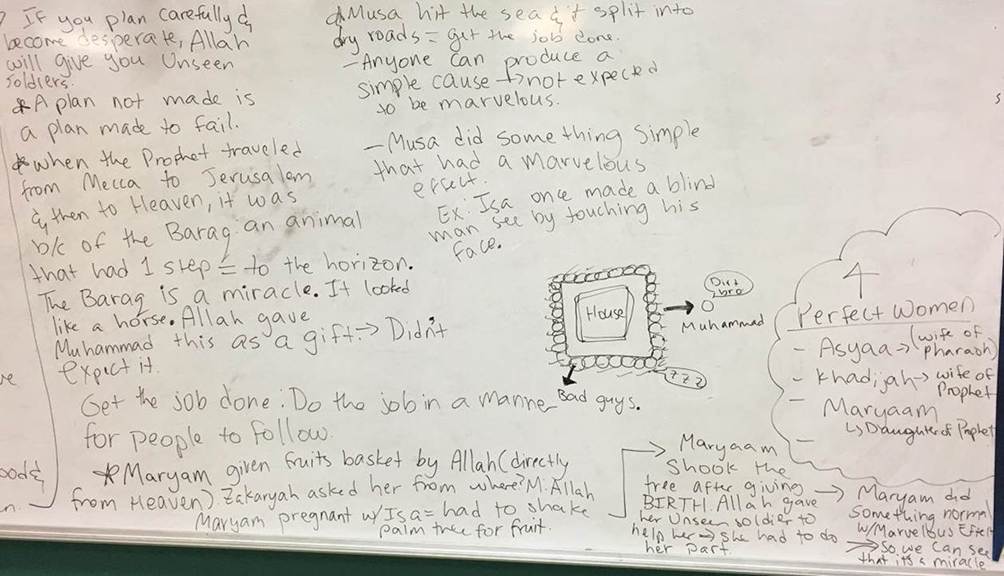 If you plan carefully &
become desperate, Allah
will give you Unseen
soldiers.
* A plan not made is
a plan made to fail.
* when the Prophet traveled
from Mecca to Jerusalem
& then to Heaven, it was
b/c of the Baraq. an animal
that had 1 step = to the horizon.
The Baraq is a miracle. It looked
like a horse. Allah gave
Muhammad this as a gift. → Didn't
expect it.
Get the job done: Do the job in a manner
for people to follow.
* Maryam given fruits basket by Allah (directly
from Heaven) Zakaryah asked her from where? M: Allah
Maryam pregnant w/ Isa = had to shake
palm tree for fruit.
Musa hit the sea & it split into
dry roads = get the job done.
- Anyone can produce a
simple cause → not expected
to be marvelous.
- Musa did something simple
that had a marvelous
effect.
Ex: Isa once made a blind
man see by touching his
face.
House
Dirt
bro
Muhammad
zzz
Bad guys.
4
Perfect Women
- Asyaa → (wife of
pharaoh)
- Khadijah → wife of
Prophet
- Maryaam
↳ Daughter of Prophet
-
→ Maryaam
Shook the
tree after giving
BIRTH. Allah gave
her Unseen soldier to
help her → she had to do
her part.
→ Maryam did
Something normal
w/Marvelous Effect
→ So we can see
that its a miracle